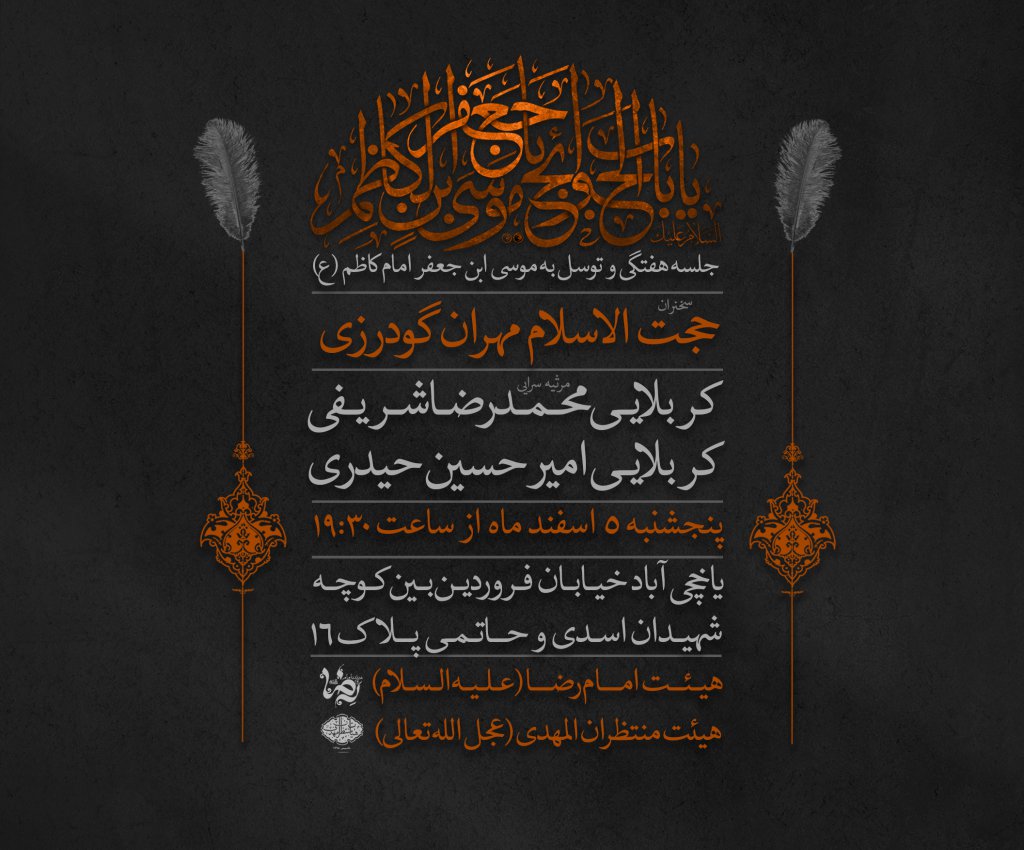 السلام علیک
یا باب الحوائج یا جعفر موسی بن الکاظم
جلسه هفتگی و توسل به موسی ابن جعفر امام کاظم (ع)
سخنران
حجت الاسلام مهران گودرزی
مرثیه سرایی
کربلایی محمدرضا شریفی
کربلایی امیر حسین حیدری
پنجشنبه ۵ اسفند ماه از ساعت ۱۹:۳۰
یاخچی آباد خیابان فروردین بین کوچه
شهیدان اسدی و حاتمی پلاک ۱۶
هیئت امام رضا (علیه السلام)
هیئت منتظران المهدی (عجل الله تعالی)